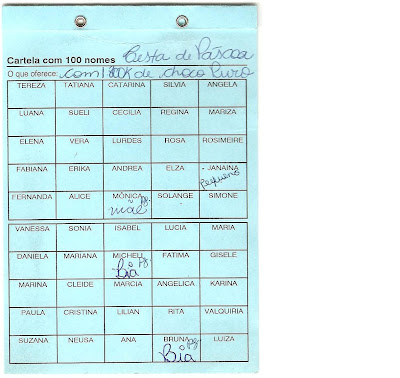 Cartela com 100 nomes Cesta de Páscoa
O que oferece: com 1 800K de choco Puro
TEREZA TATIANA CATARINA SILVIA ANGELA
LUANA SUELI CECILIA REGINA MARIZA
ELENA VERA LURDES ROSA ROSIMEIRE
FABIANA ERIKA ANDREA ELZA JANAINA
Pequeno
FERNANDA ALICE MÔNICA pg. SOLANGE SIMONE
mãe
VANESSA SONIA ISABEL LUCIA MARIA
DANIELA MARIANA MICHELI pg FATIMA GISELE
Bia
MARINA CLEIDE MARCIA ANGELICA KARINA
PAULA CRISTINA LILIAN RITA VALQUIRIA
SUZANA NEUSA ANA BRUNA pg LUIZA
Bia